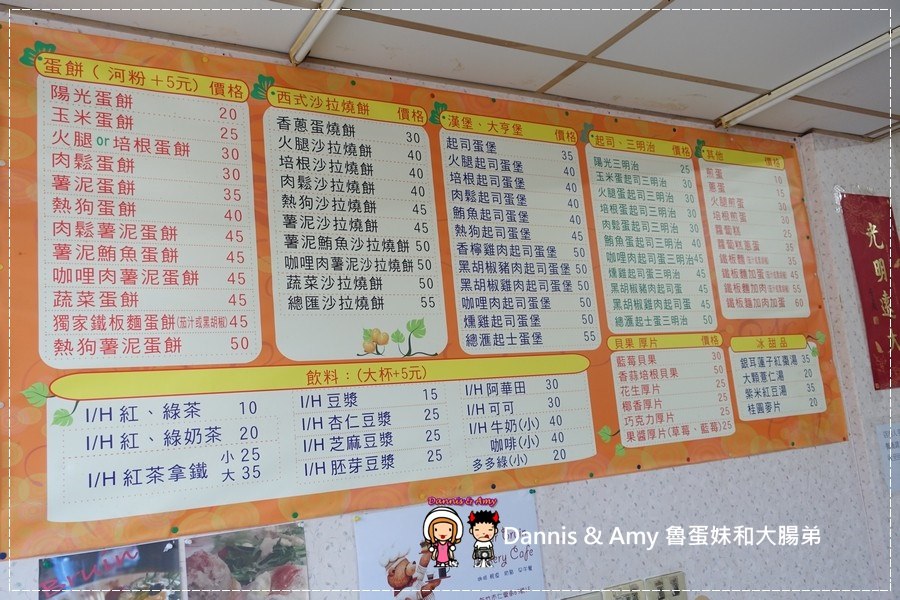 蛋餅 ( 河粉+5元) 價格
陽光蛋餅 20
玉米蛋餅 25
火腿or培根蛋餅 30
肉鬆蛋餅 30
薯泥蛋餅 35
熱狗蛋餅 40
肉鬆薯泥蛋餅 45
薯泥鮪魚蛋餅 45
咖哩肉薯泥蛋餅 45
蔬菜蛋餅 45
獨家鐵板麵蛋餅(茄汁或黑胡椒) 45
熱狗薯泥蛋餅 50
西式沙拉燒餅 價格
香蔥蛋燒餅 30
火腿沙拉燒餅 40
培根沙拉燒餅 40
肉鬆沙拉燒餅 40
熱狗沙拉燒餅 45
薯泥沙拉燒餅 45
薯泥鮪魚沙拉燒餅 50
咖哩肉薯泥沙拉燒餅 50
蔬菜沙拉燒餅 50
總匯沙拉燒餅 55
漢堡、大亨堡 價格
起司蛋堡 35
火腿起司蛋堡 40
培根起司蛋堡 40
肉鬆起司蛋堡 40
鮪魚起司蛋堡 40
熱狗起司蛋堡 45
香檸雞肉起司蛋堡 50
黑胡椒豬肉起司蛋堡 50
黑胡椒雞肉起司蛋堡 50
咖哩肉起司蛋堡 50
燻雞起司蛋堡 50
總滙起士蛋堡 55
起司、三明治 價格
陽光三明治 25
玉米蛋起司三明治 30
火腿蛋起司三明治 30
培根蛋起司三明治 30
肉鬆蛋起司三明治 30
鮪魚蛋起司三明治 40
咖哩肉起司蛋三明治 45
燻雞起司蛋三明治 45
黑胡椒豬肉起司蛋 45
黑胡椒雞肉起司蛋 45
總滙起士蛋三明治 50
其他 價格
煎蛋 10
蔥蛋 15
火腿煎蛋 30
培根煎蛋 30
蘿蔔糕 25
蘿蔔糕蔥蛋 35
鐵板麵 35
鐵板麵加肉 45
鐵板麵加蛋 55
鐵板麵加肉加蛋 60
貝果 厚片 價格
藍莓貝果 30
香蒜培根貝果 50
花生厚片 25
椰香厚片 25
巧克力厚片 25
果醬厚片(草莓、藍莓) 25
冰甜品
銀耳蓮子紅棗湯 35
大顆薏仁湯 20
紫米紅豆湯 35
桂圓麥片 20
飲料:(大杯+5元)
I/H 紅、綠茶 10
I/H 紅、綠奶茶 20
I/H 紅茶拿鐵 小 25
大 35
I/H 豆漿 15
I/H 杏仁豆漿 25
I/H 芝麻豆漿 25
I/H 胚芽豆漿 25
I/H 阿華田 30
I/H 可可 30
I/H 牛奶(小) 40
咖啡(小) 40
多多綠(小) 20
光明遠大
Dannis & Amy
Dannis & Amy 魯蛋妹和大腸弟